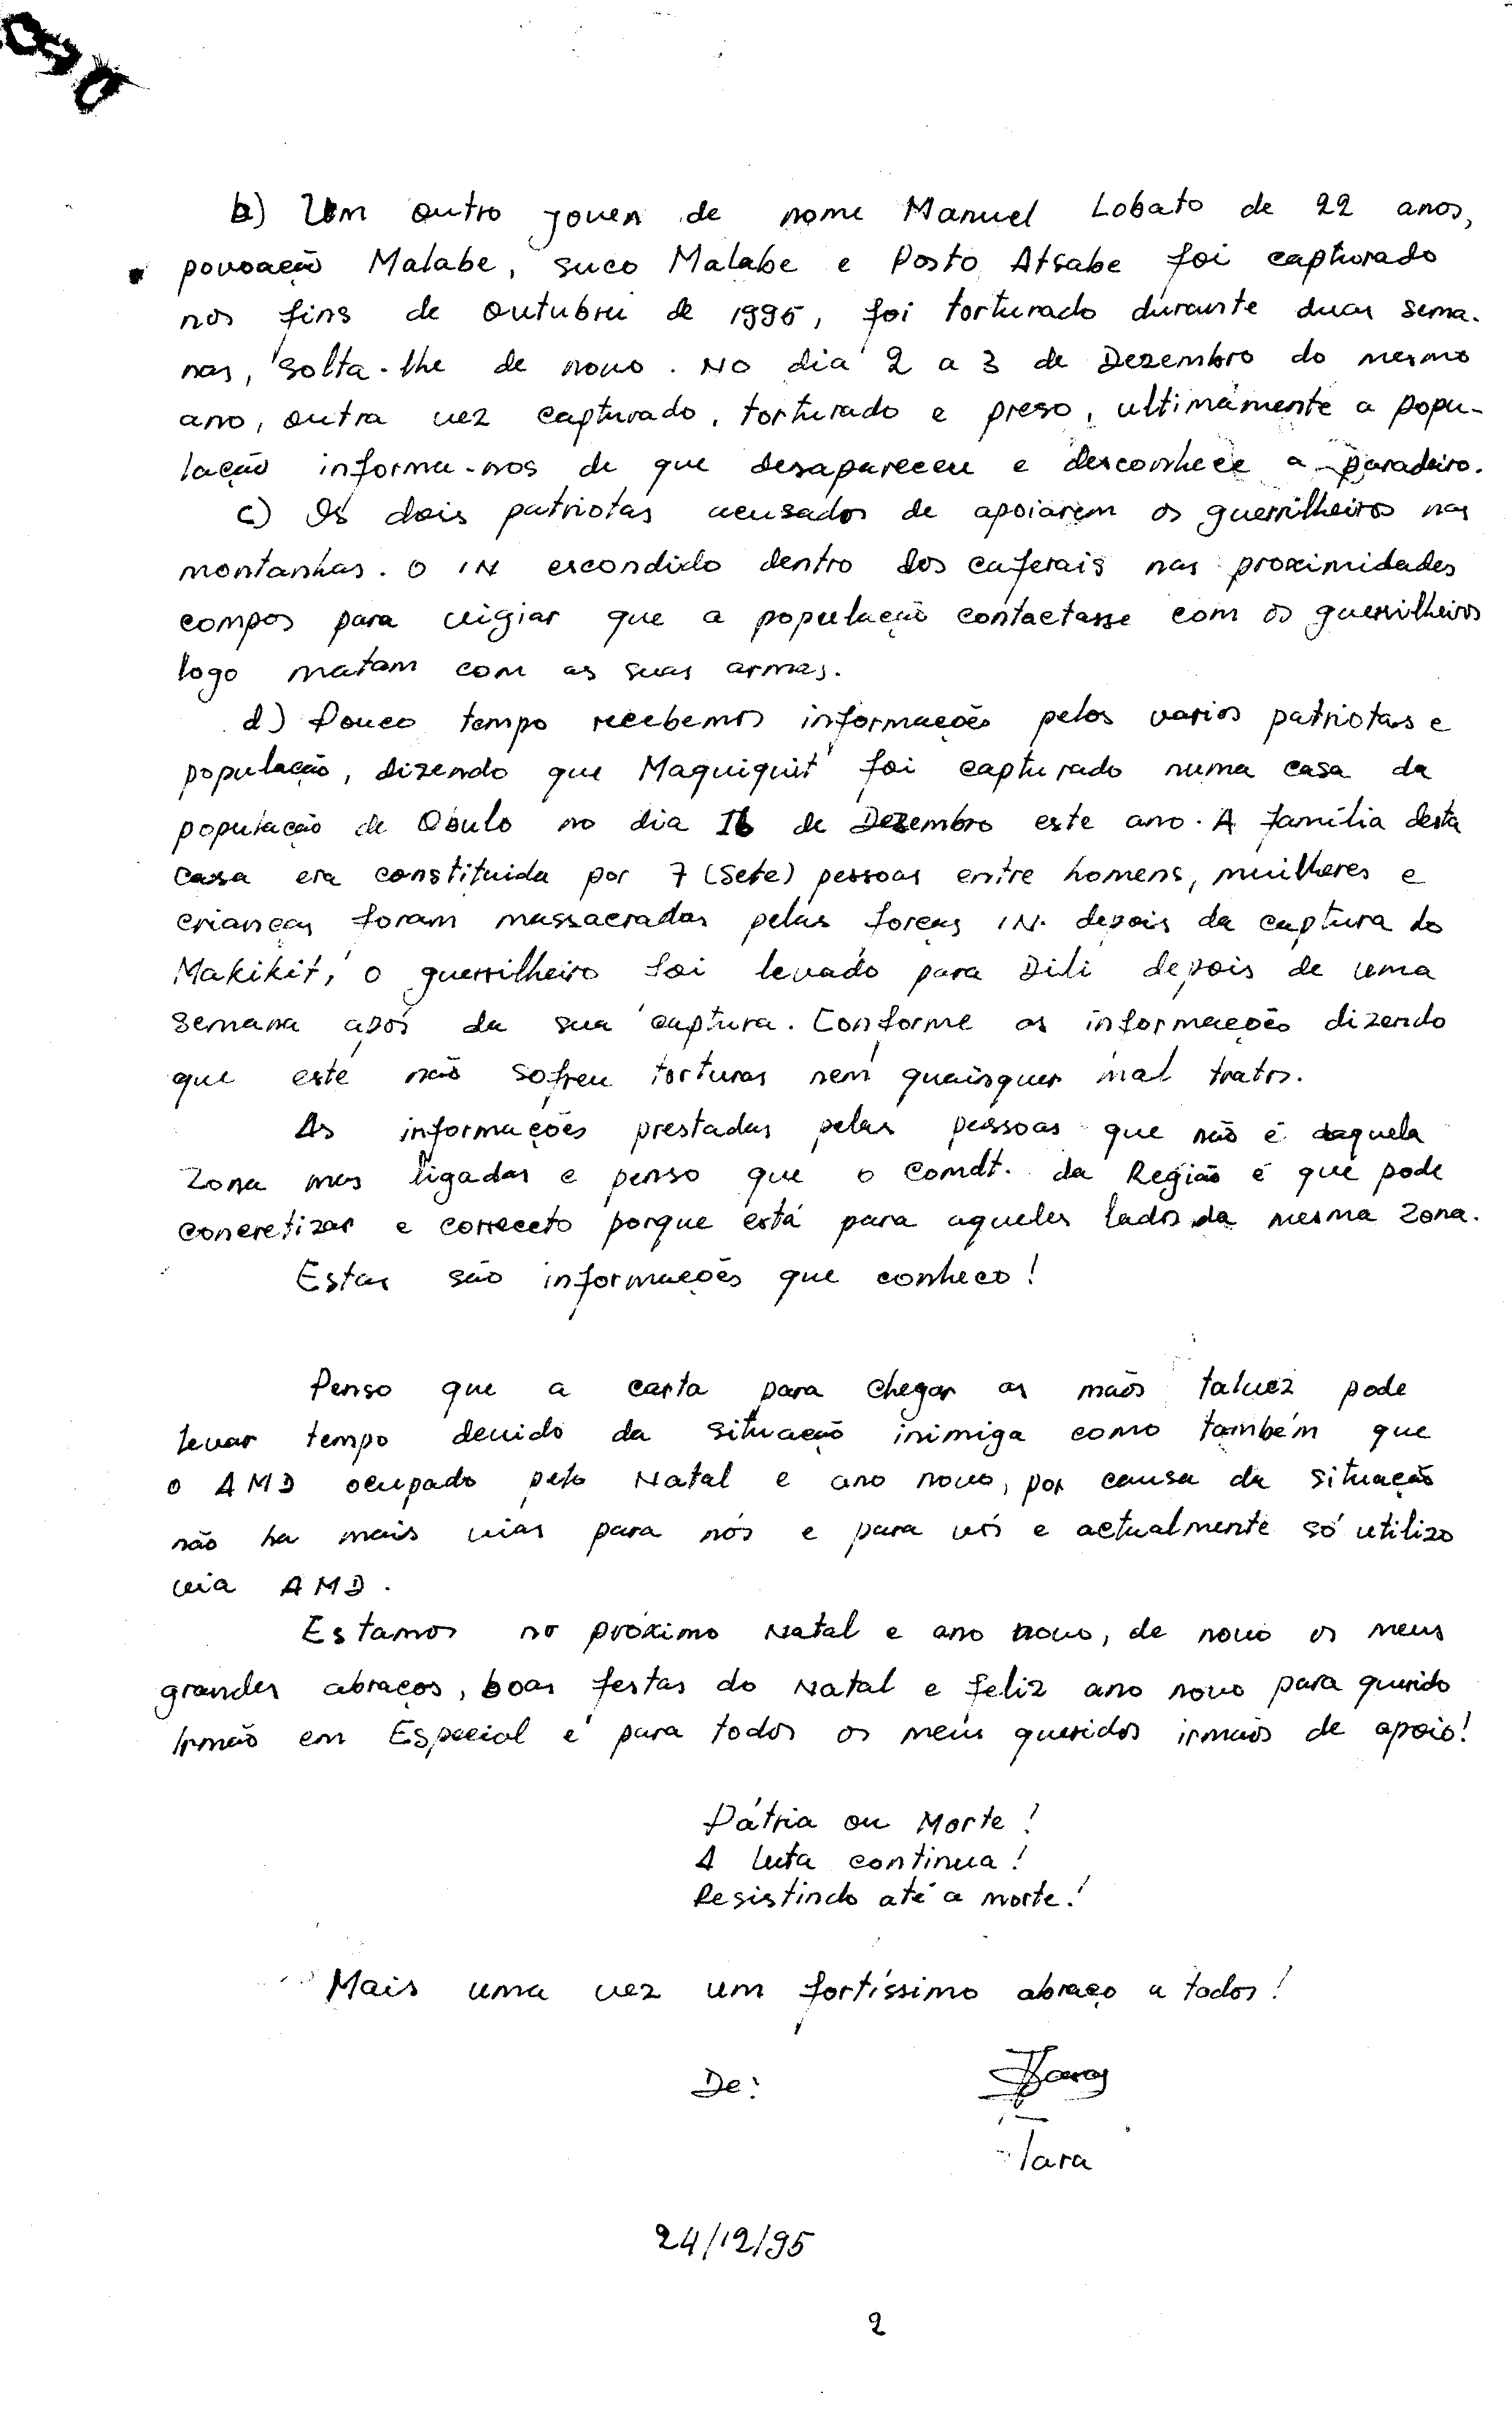 b) Um outro jovem de nome Manuel Lobato de 22 anos,
povoação Malabe, suco Malabe e Posto Atsabe foi capturado
nos fins de Outubru de 1995, foi torturado durante duas sema-
nas, solta-lhe de novo. No dia 2 a 3 de Dezembro do mesmo
ano, outra vez capturado, torturado e preso, ultimamente a popu-
lação informa-nos de que desapareceu e desconhece a paradeiro.
c) Os dois patriotas acusados de apoiarem os guerrilheiros nas
montanhas. O IN escondido dentro dos caferais nas proximidades
compos para vigiar que a população contactasse com os guerrilheiros
logo matam com as suas armas.
d) Pouco tempo recebemos informações pelos varios patriotas e
população, dizendo que Maquiquit foi capturado numa casa da
população de Obulo no dia 16 de Dezembro este ano. A família desta
casa era constituida por 7 (Sete) pessoas entre homens, muilheres e
crianças foram massacradas pelas forças IN. depois da captura do
Makikit, o guerrilheiro foi levado para Dili depois de uma
semana após da sua captura. Conforme as informações dizendo
que este não sofreu torturas nem quaisquer mal tratos.
As informações prestadas pelas pessoas que não é daquela
zona mas ligadas e penso que o Comdt. da Região é que pode
concretizar e correcto porque está para aqueles lados da mesma zona.
Estas são informações que conheço!
Penso que a carta para chegar as mãos talvez pode
levar tempo devido da situação inimiga como também que
o AMD ocupado pelo Natal e ano novo, por causa da situação
não ha mais vias para nós e para vós e actualmente só utilizo
via AMD.
Estamos no próximo Natal e ano novo, de novo os meus
grandes abraços, boas festas do Natal e feliz ano novo para querido
Irmão em Especial e para todos os meus queridos irmãos de apoio!
Pátria ou Morte!
A luta continua!
Resistindo até a morte!
Mais uma vez um fortíssimo abraço a todos!
De:
Tara
24/12/95
2